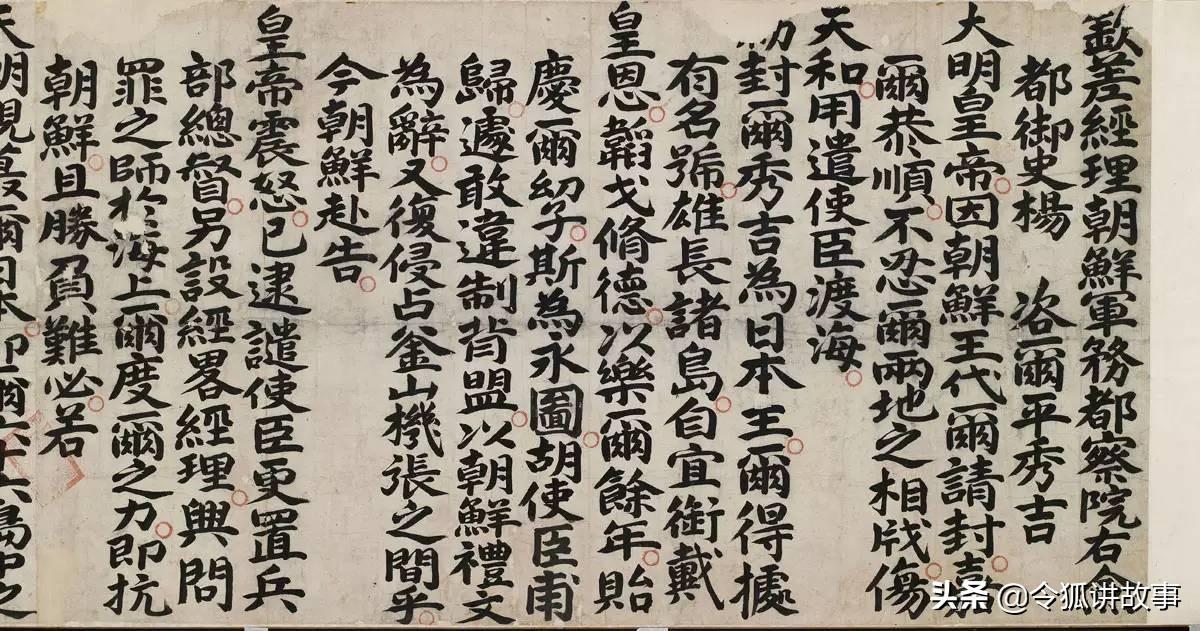 欽差經理朝鮮軍務都察院右僉
都御史楊 咨爾平秀吉
大明皇帝因朝鮮王代爾請封嘉
爾恭順不忍爾兩地之相戕傷
天和用遣使臣渡海
封爾秀吉為日本王爾得據
有名號雄長諸島自宜銜戴
皇恩韜戈脩德以樂爾餘年貽
慶爾幼子斯為永圖胡使臣甫
歸遽敢違制背盟以朝鮮禮文
為辭又復侵占釜山機張之間乎
今朝鮮赴告
皇帝震怒已逮譴使臣更置兵
部總督另設經畧經理興問
罪之師於海上爾度爾之力即抗
朝鮮且勝負難必若
天朝視蕞爾日本即爾六十六島中之
头条 @令狐讲故事